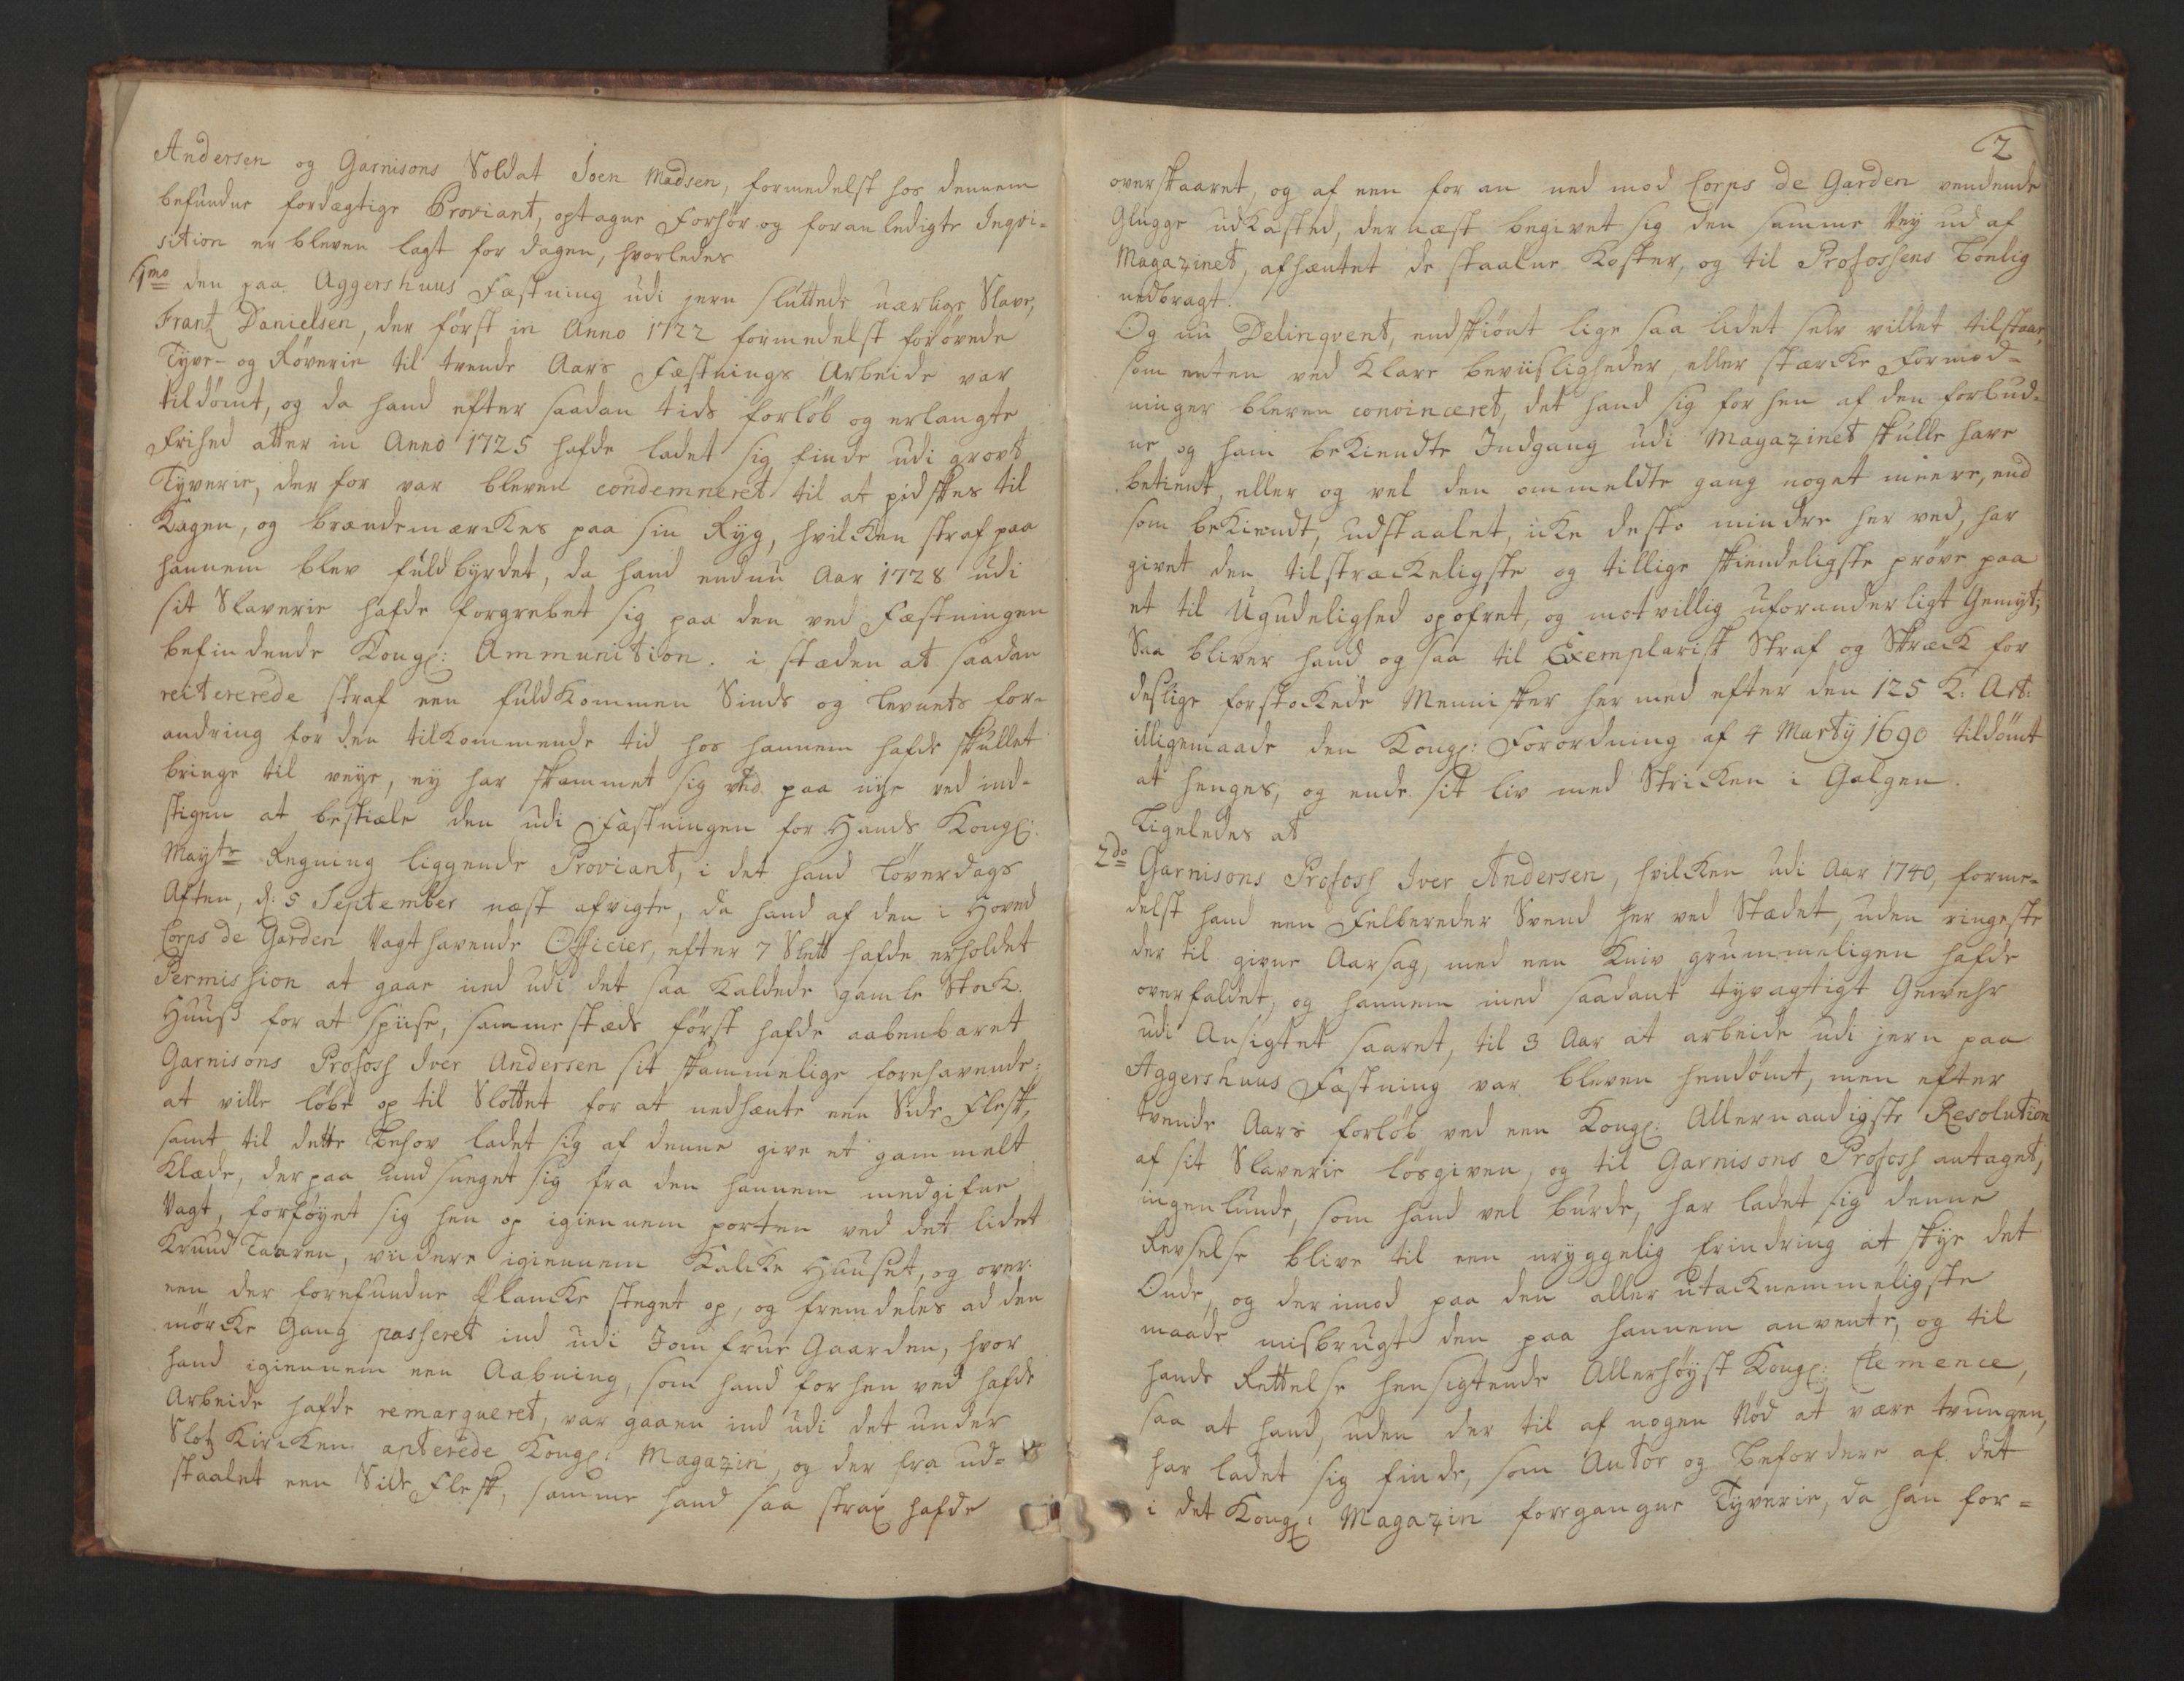 Andersen og Garnisons Soldat Joen Madsen, formedelst hos dennem
befundne fordægtige Proviant, optagne Forhør og foranledigte Inqvi-
sition er bleven lagt for dagen, hvorledes
1mo den paa Aggershuus Fæstning udi jern sluttede uærlige Slave,
Frantz Danielsen, der først in Anno 1722 formedelst forøvede
Tyve- og Røverie til trende Aars Fæstnings Arbeide var
tildømt, og da hand efter saadan tids forløb og erlangte
Frihed atter in Anno 1725 hafde ladet sig finde udi grovt
Tyverie, der for var bleven condemneret til at pidskes til
Kagen, og brændemærckes paa sin Ryg, hvilcken straf paa
hannem blev fuldbyrdet, da hand endnu Aar 1728 udi
sit Slaverie hafde forgrebet sig paa den ved Fæstningen
befindende Kongl: Ammunition. i stæden at saadan
reitererede straf een fuldkommen Sinds og Levnets for-
andring for den tilkommende tid hos hannem hafde skullet
bringe til veye, ey har skammet sig ved paa nye ved ind-
stigen at bestiæle den udi Fæstningen for Hands Kongl:
Mayts Regning liggende Proviant, i det hand Løverdags
Aften, d: 5 September næst afvigte, da hand af den i Hoved
Corps de Garden Vagthavende Officier, efter 7 Slett hafde erholdet
Permission at gaae ned udi det saa kaldede gamle Stock-
Huus for at spiise, sammestæds først hafde aabenbaret
Garnisons Profoss Iver Andersen sit skammelige forehavende:
at ville løbe op til Slottet for at nedhænte een Side Flesk,
samt til dette Behov ladet sig af denne give et gammelt
Klæde, der paa undsneget sig fra den hannem medgifne
Vagt, forføyet sig hen op igiennem porten ved det lidet
Krund Taaren, viidere igiennem Kalcke Huuset, og over
een der forefundne Plancke steget op, og fremdeles ad den
mørcke Gang passeret ind udi Jomfrue Gaarden, hvor
hand igiennem een Aabning, som hand for hen ved hafde
Arbeide hafde remarqueret, var gaaen ind udi det under
Slotz Kircken apterede Kongl: Magazin, og der fra ud-
staalet een Side Flesk, samme hand saa strax hafde
2
overskaaret, og af een for an ned mod Corps de Garden vendende
Glugge udkasted, der næst begivet sig den samme Vey ud af
Magazinet, afhæntet de staalne Koster, og til Profossens Bolig
nedbragt.
Og nu Delinqvent, endskiønt lige saa lidet selv villet tilstaae,
som enten ved klare beviisligheder, eller stærcke Formod-
ninger bleven convinceret, det hand sig for hen af den forbud-
ne og ham bekiendte Indgang udi Magazinet skulle have
betient, eller og vel den ommeldte gang noget meere, end
som bekiendt, udstaalet, icke desto mindre her ved, har
givet den tilstræckeligste og tillige skiendeligste prøve paa
et til Ugudelighed opofret, og motvillig uforanderligt Gemyt;
Saa bliver hand og saa til Exemplarisk Straf og Skræck for
deslige forstockede Mennisker her med efter den 125 K: Art:
illigemaade den Kongl: Forordning af 4 Marty 1690 tildømt
at henges, og ende sit liv med Stricken i Galgen.
Ligeledes at
2do Garnisons Profoss Iver Andersen, hvilcken udi Aar 1740, forme-
delst hand een Felbereder Svend her ved Stædet, uden ringeste
der til givne Aarsag, med een Kniv grummeligen hafde
overfaldet, og hannem med saadant tyvagtigt Gewehr
udi Ansigtet saaret, til 3 Aar at arbeide udi jern paa
Aggershuus Fæstning var bleven hendømt, men efter
tvende Aars forløb ved een Kongl: Allernaadigste Resolution
af sit Slaverie løsgiven, og til Garnisons Profoss antaget;
ingenlunde, som hand vel burde, har ladet sig denne
Revselse blive til een uryggelig Erindring at skye det
Onde, og derimod paa den aller utacknemmeligste
maade misbrugt den paa hannem anvente, og til
hands Rettelse hensigtende Allerhøyst Kongl: Clemence,
saa at hand, uden der til af nogen Nød at være tvungen,
har ladet sig finde, som Autor og Befordere af det
i det Kongl: Magazin foregangne Tyverie, da han for-